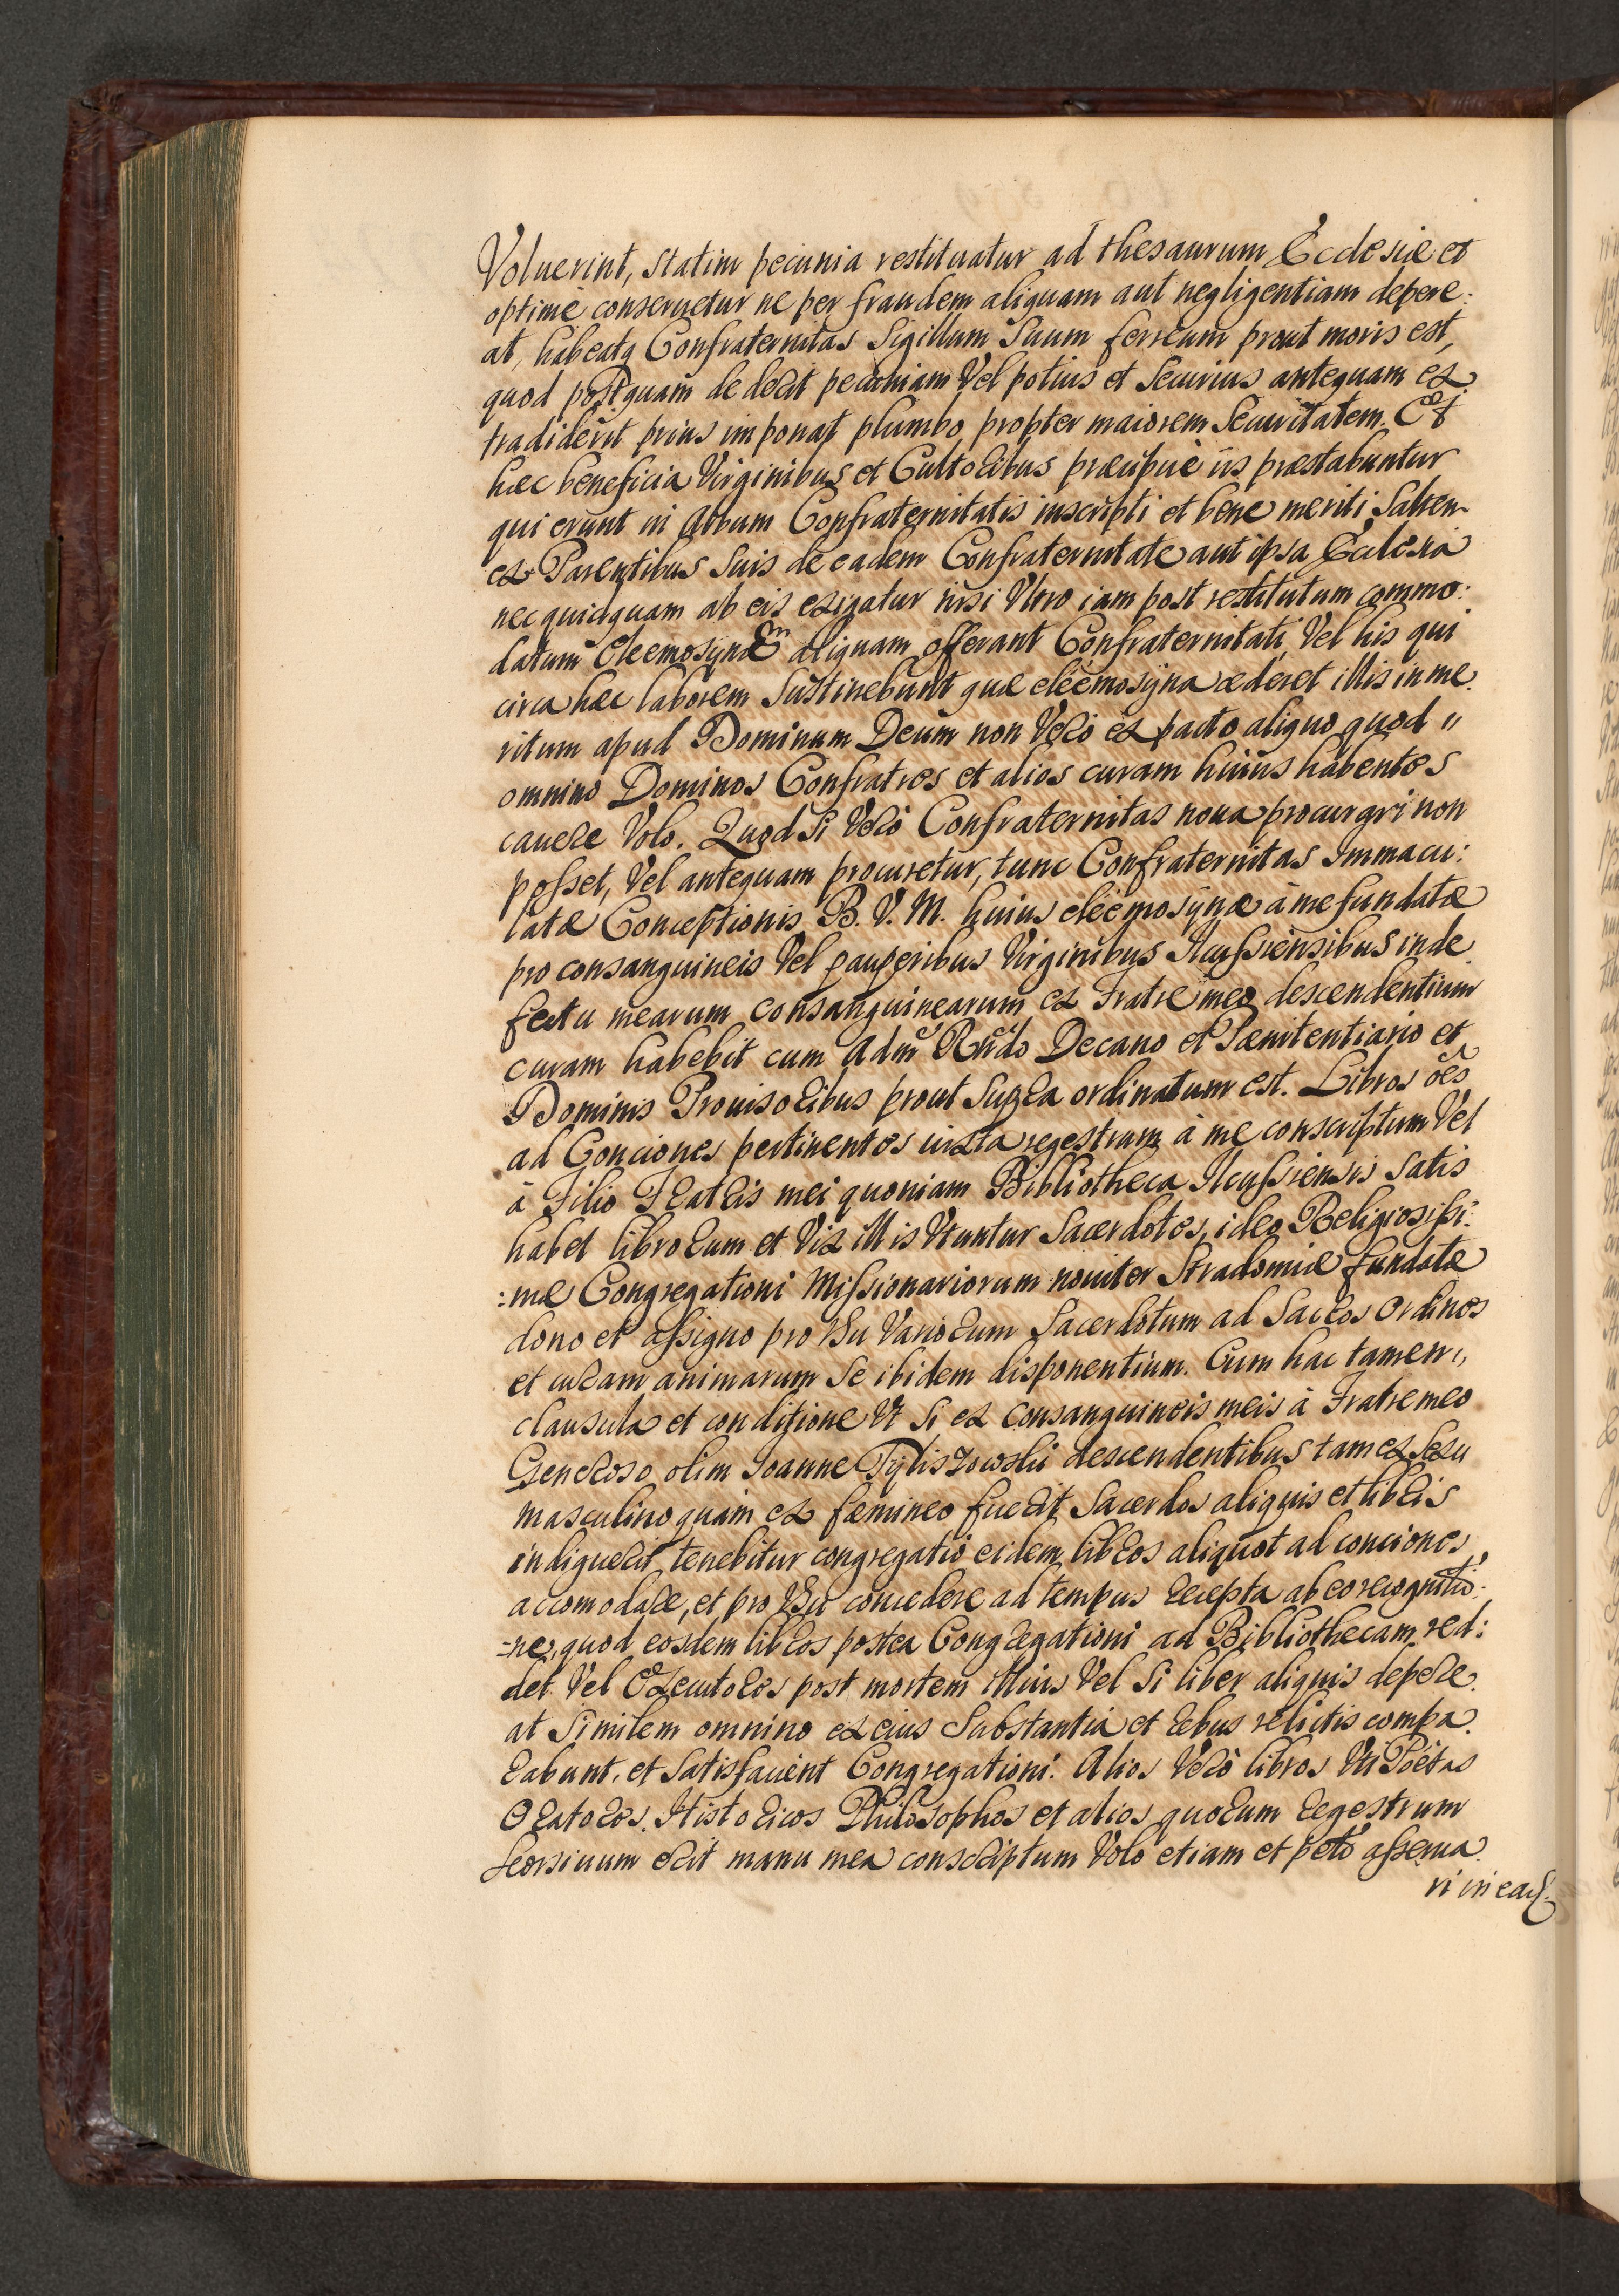 Voluerint, statim pecunia restituatur ad thesaurum Ecclesiæ et
optimè conseruetur ne per fraudem aliquam aut negligentiam depere:
at, habeatq Confraternitas Sigillum Suum ferreum prout moris est,
quod postquam dederit pecuniam Vel potius et Securius antequam ex
tradiderit prius imponat plumbo propter maiorem Securitatem. Et
hæc beneficia Virginibus et Cultoribus præcipuè iis præstabuntur
qui erunt in Album Confraternitatis inscripti et bene meriti Saltem
ex Parentibus Suis de eadem Confraternitate aut ipsa Ecclesia
nec quicquam ab eis exigatur nisi Vltro iam post restitutum commo:
datum Eleemosynam aliquam offerant Confraternitati, Vel his qui
circa hæc laborem Sustinebunt quæ eleémosÿna cederet illis in me.
ritum apud Dominum Deum non Verò ex pacto aliquo quod "
omnino Dominos Confratres et alios curam huius habentes
cauere Volo. Quod Si Verò Confraternitas noua procurari non
posset, Vel antequam procuretur, tunc Confraternitas Immacu:
latæ Conceptionis B. V. M. huius eleémosÿnæ à me fundatæ
pro consanguineis Vel pauperibus Virginibus Ilcussiensibus in de
fectu mearum consanguinearum ex Fratre meo descendentium
curam habebit cum Adm̃ Rñdo Decano et Pænitentiario et
Dominis Prouisoribus prout Supra ordinatum est. Libros oẽs
ad Conciones pertinentes iuxta regestrum à me conscriptum Vel
à Filio Fratris mei quoniam Bibliotheca Ilcussiensis Satis
habet librorum et Vix illis Vtuntur Sacerdotes, ideo Religiosissi:
:mæ Congregationi Missionariorum nouiter Stradomiæ fundatæ
dono et assigno pro Vsu Variorum Sacerdotum ad Sacros Ordines
et curam animarum Se ibidem disponentium. Cum hac tamen "
clausula et conditione Vt Si ex Consanguineis meis à Fratre meo
Generoso olim Joanne Tÿliszowski descendentibus tam ex Sexu
masculino quàm ex fæmineo fuerit Sacerdos aliquis et libris
indiguerit, tenebitur congregatio eidem libros aliquot ad conciones,
accomodare, et pro Vsu concedere ad tempus recepta ab eo recognitio:
-ne, quod eosdem libros postea Congregationi ad Bibliothecam red:
det Vel Executores post mortem illius Vel Si liber aliquis depere.
at Similem omnino ex eius Substantia et rebus relictis compa.
rabunt, et Satisfacient Congregationi. Alios Verò libros Vti Poétas
Oratores. Historicos Philosophos et alios quorum regestrum
Seorsiuum erit manu mea conscriptum Volo etiam et peto asserua.
ri in ead.